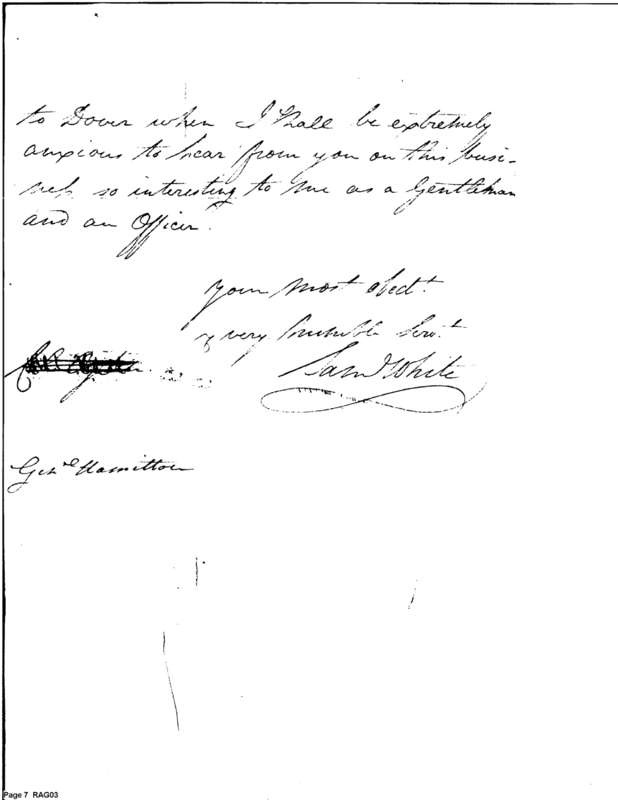 to Dover when I shall be extremely
anxious to hear from you on this busi-
ness so interesting to me as a Gentleman
and an Officer.
your most obedt
& very humble Servt
Saml White
Genl Hamilton
Page 7 RAG03